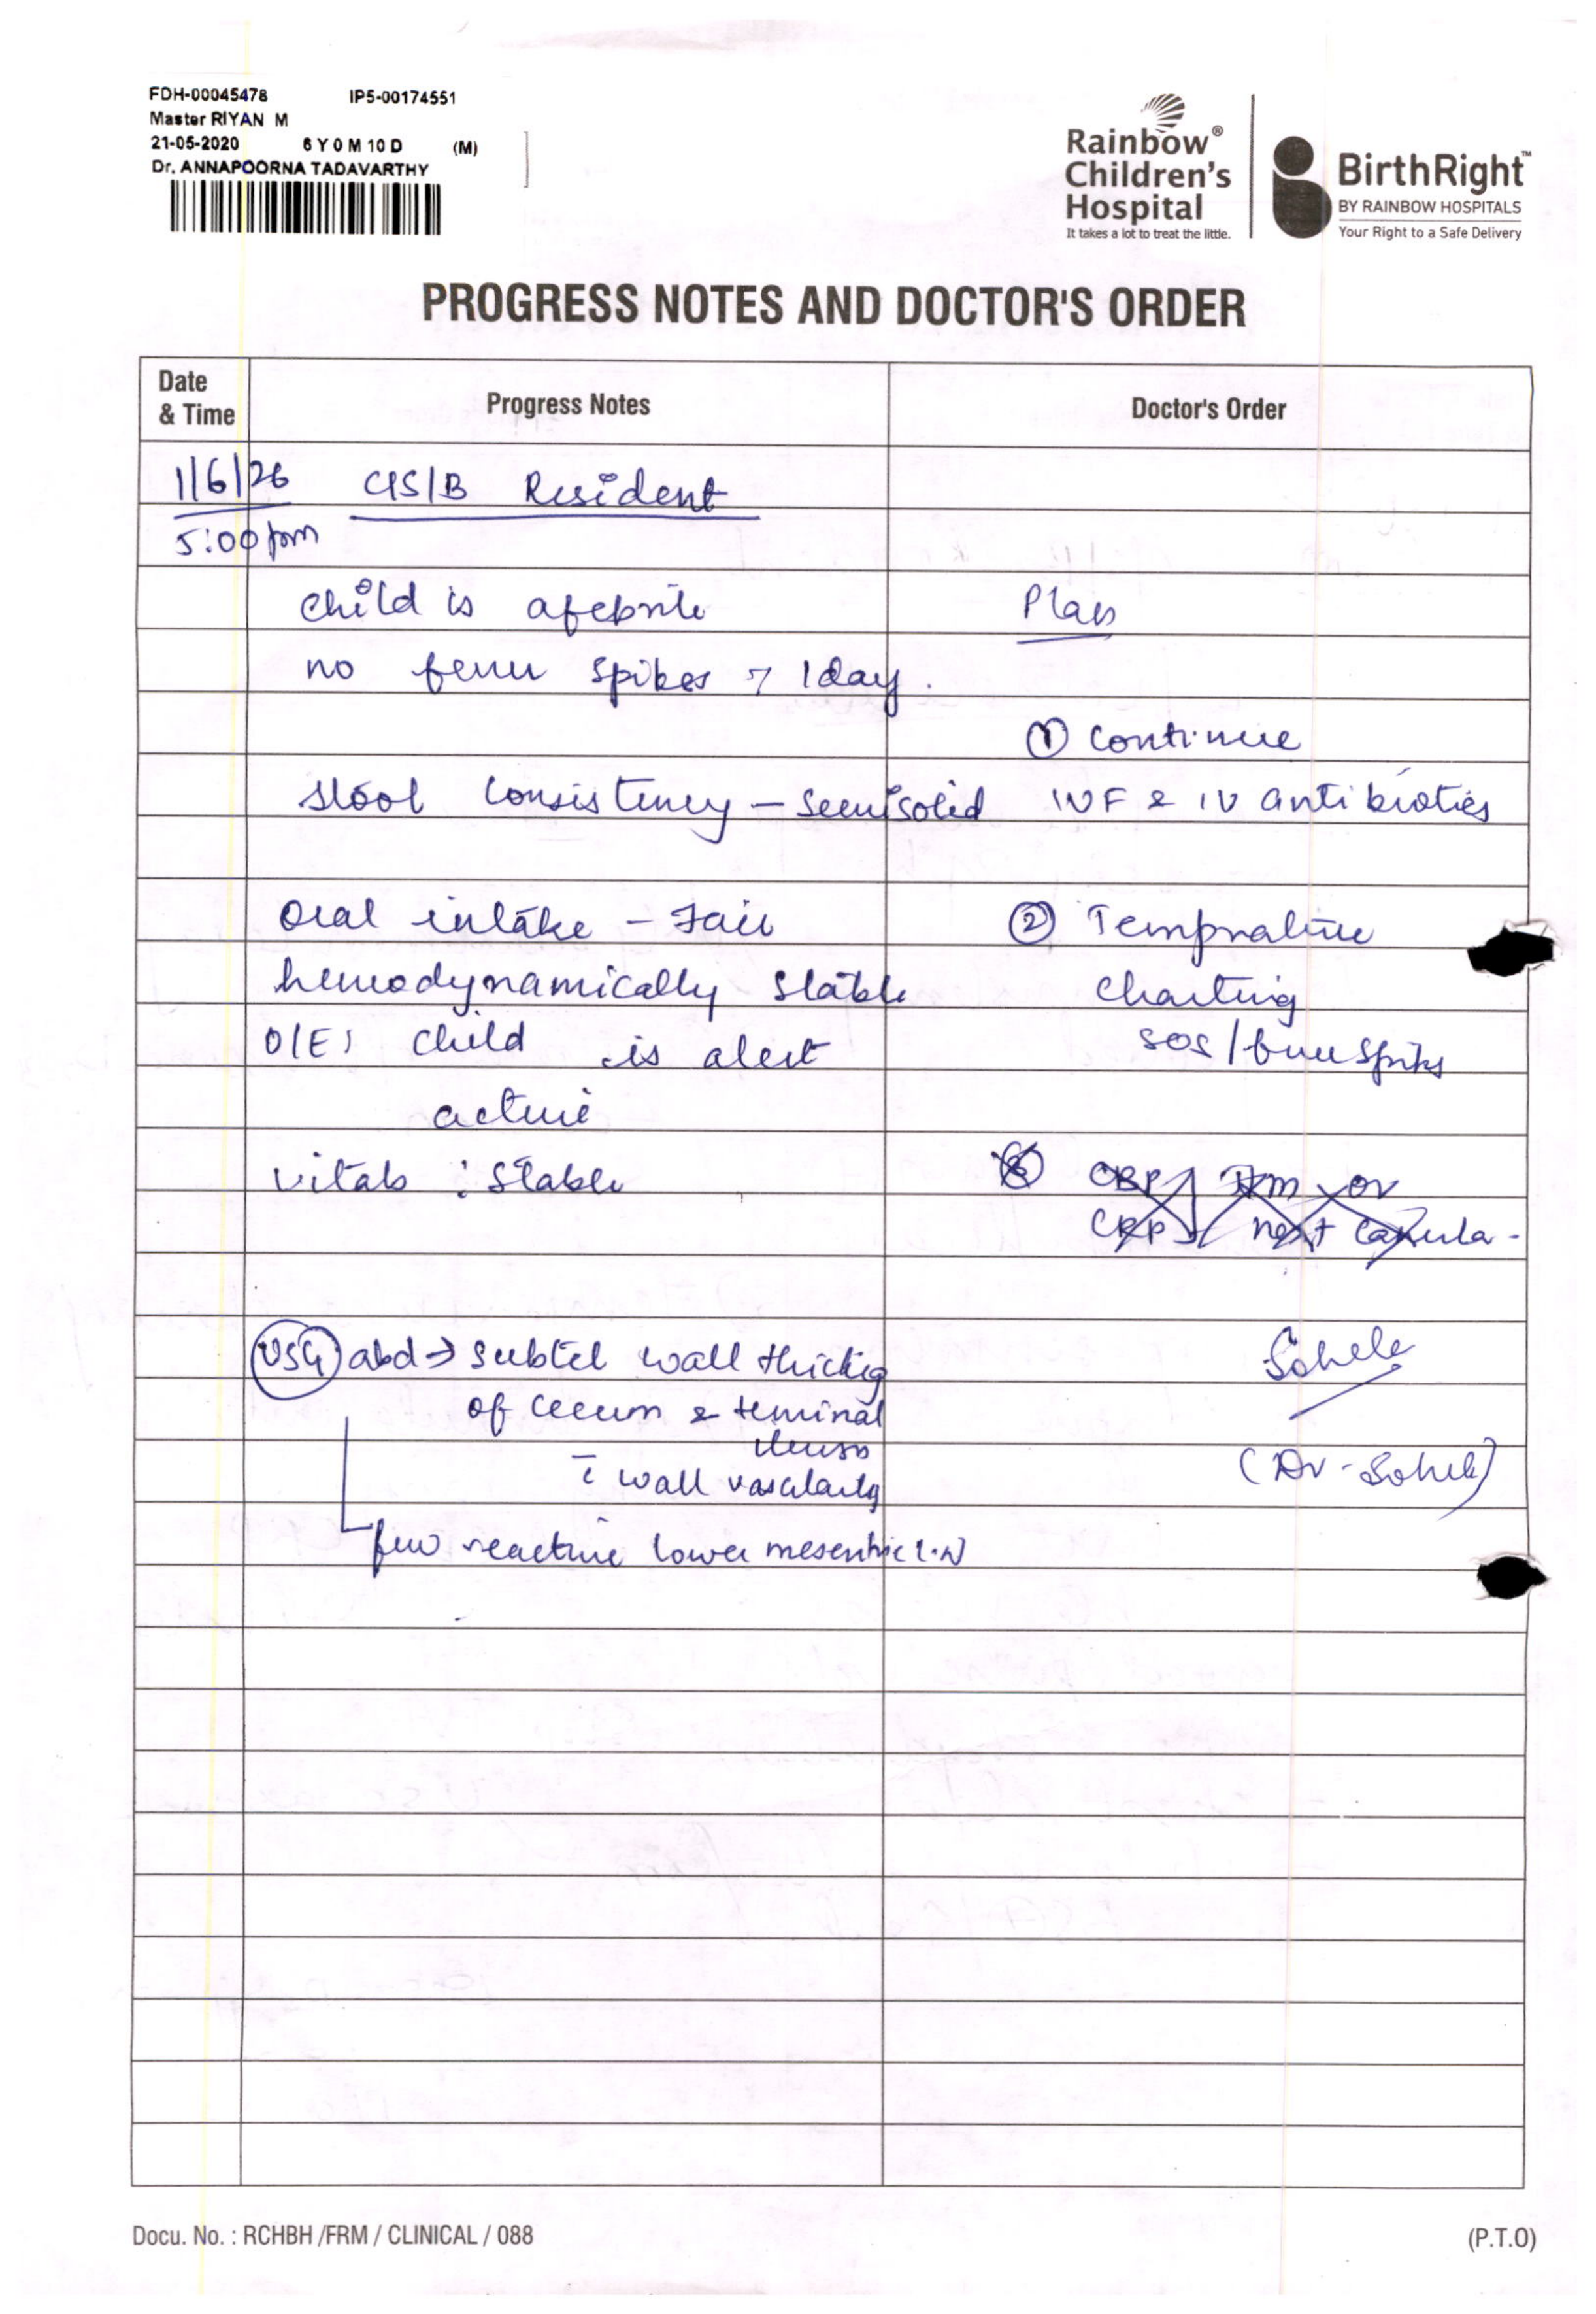 FDH-00045478 IP5-00174551
Master RIYAN M
21-05-2020 6 Y 0 M 10 D (M)
Dr. ANNAPOORNA TADAVARTHY
Rainbow®
Children's
Hospital
It takes a lot to treat the little.
BirthRight™
BY RAINBOW HOSPITALS
Your Right to a Safe Delivery
PROGRESS NOTES AND DOCTOR'S ORDER
Date
& Time
Progress Notes
Doctor's Order
1/6/26 C/S/B Resident
5:00pm
child is afebrile
Plan
no fever spikes 7 1day.
① Continue
stool consistency - semisolid
IVF & IV antibiotics
oral intake - Fair
② Temprature
hemodynamically stable
charting
O/E: child is alert
sos/fever spikes
active
vitals : Stable
③ CBP } Tm or
CRP } next canula -
USG abd → subtel wall thickig
of cecum & teminal
ileum
c̄ wall vascularity
few reactive lower mesentric L.N
Sohele
(Dr. Sohele)
Docu. No. : RCHBH /FRM / CLINICAL / 088
(P.T.O)